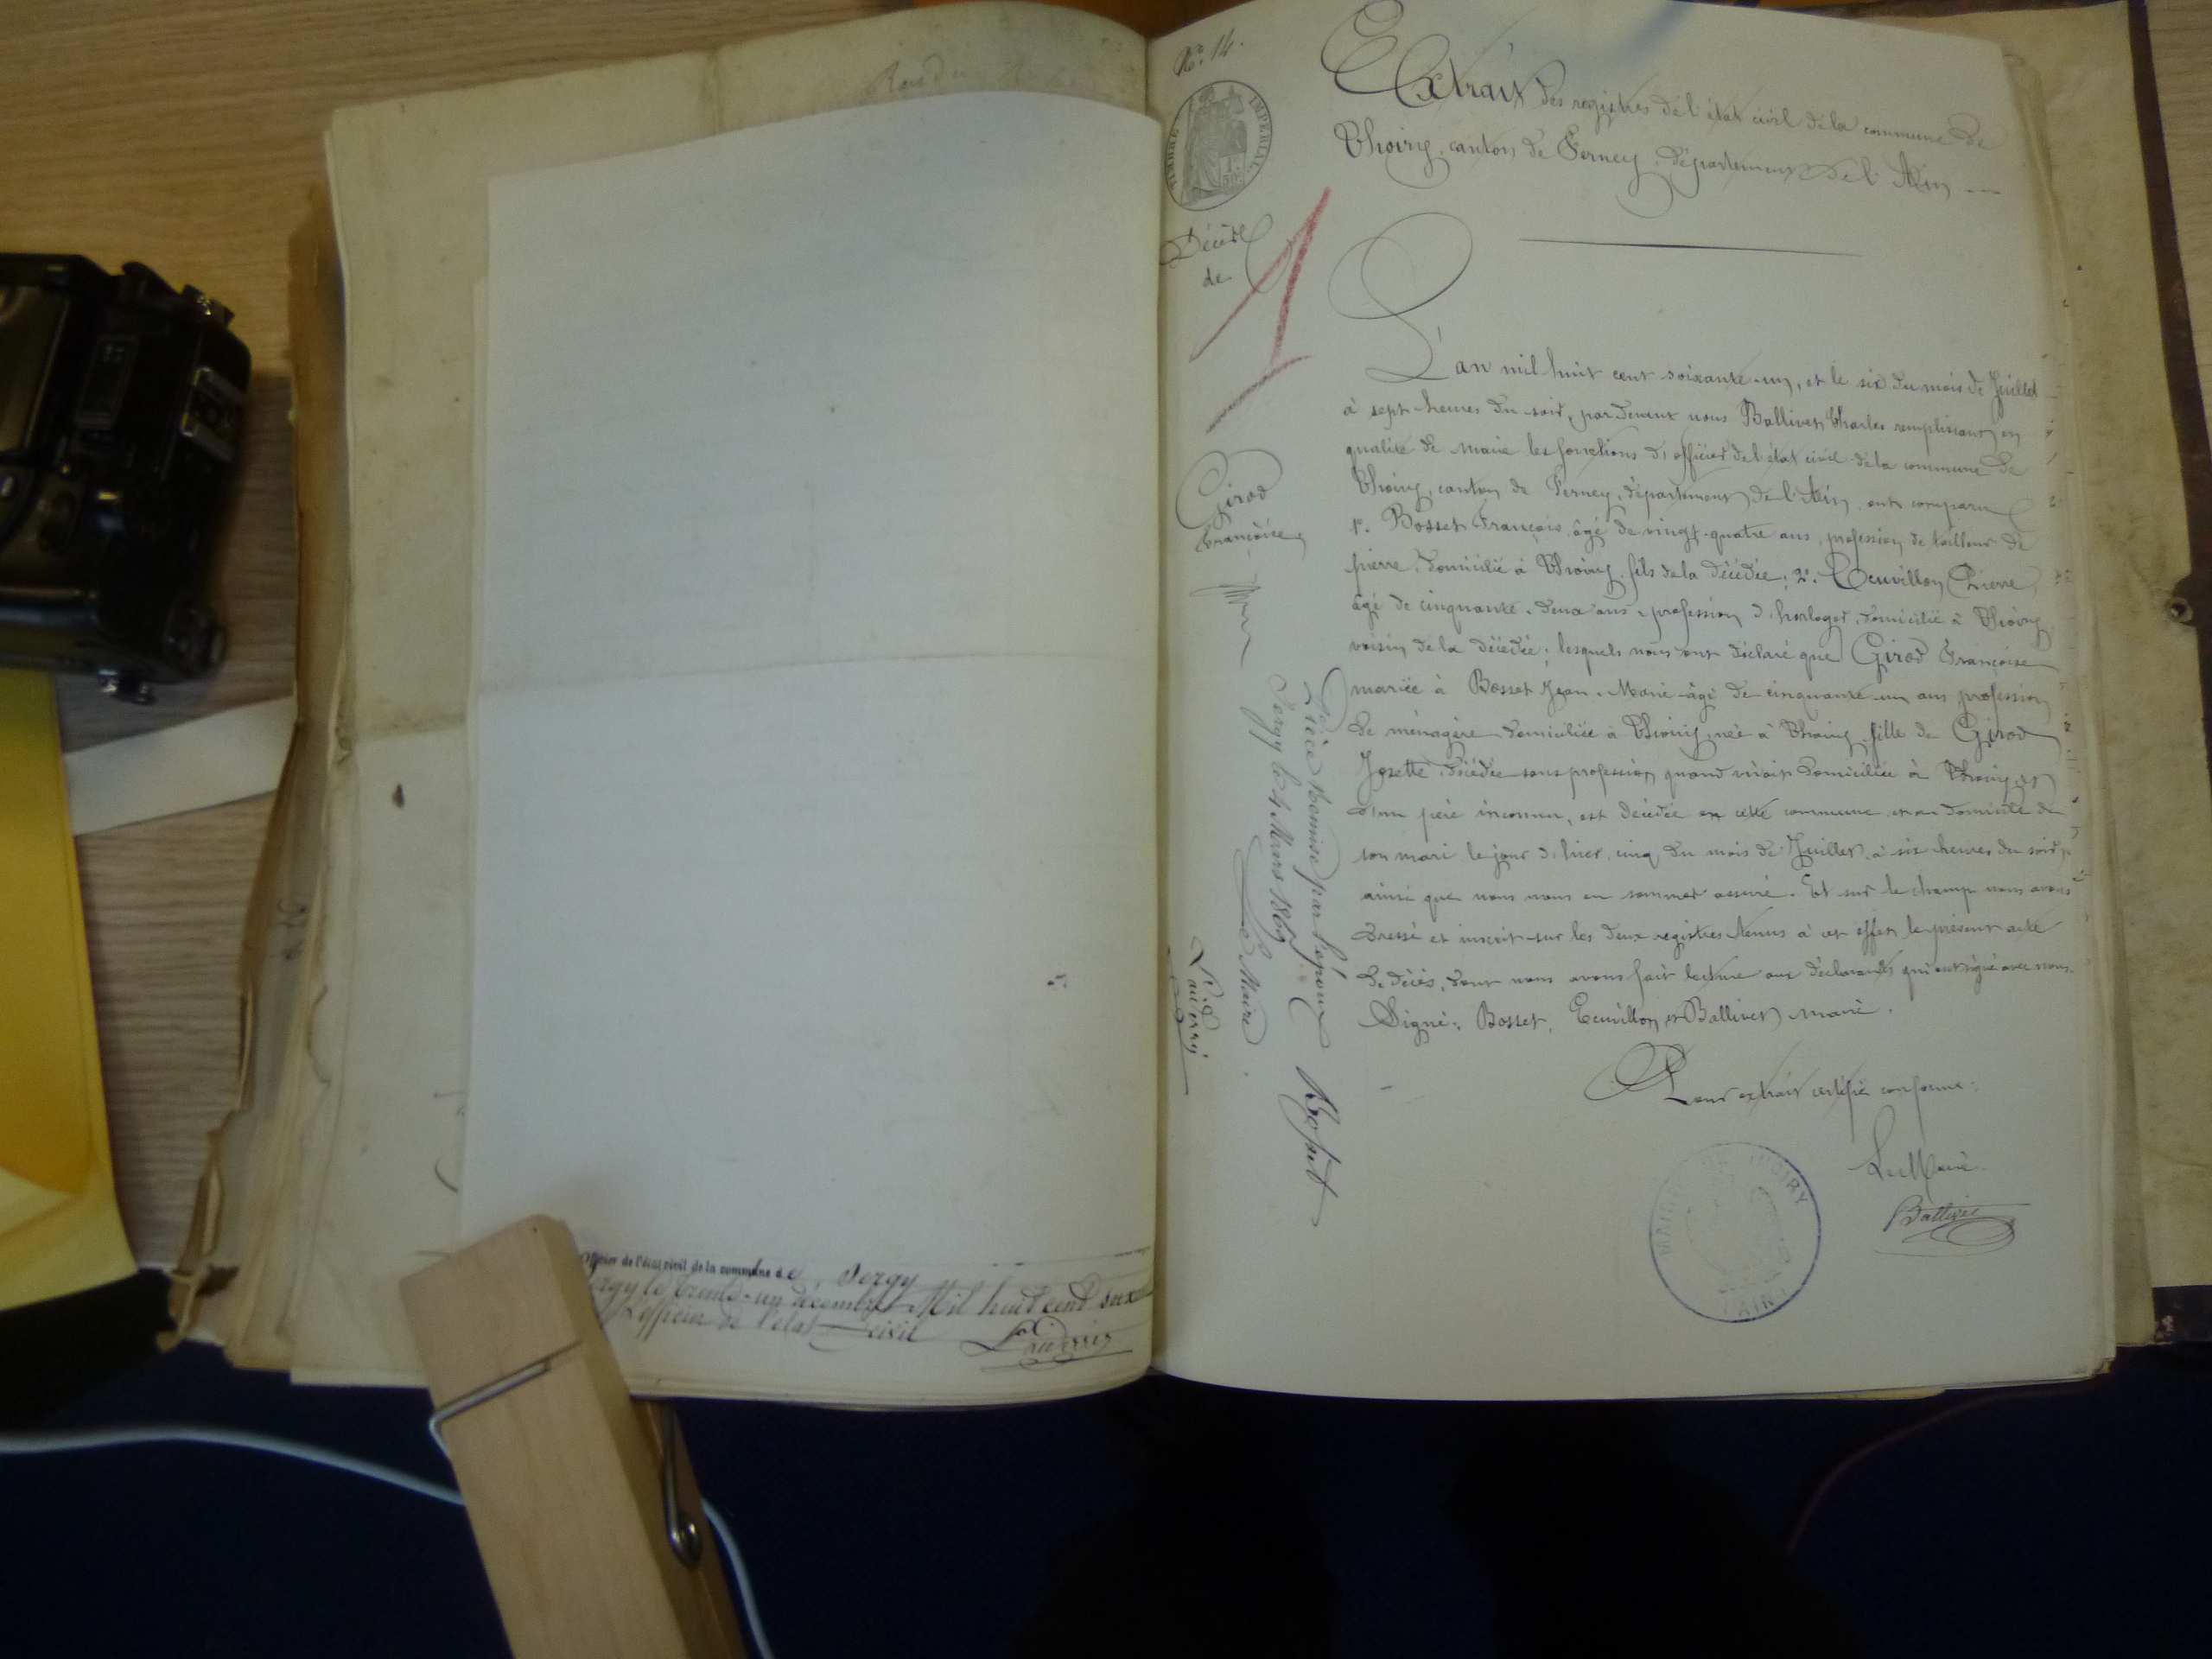 officier de l'état civil de la commune de Sergy
Sergy le trente-un décembre Mil huit cent soix
L'officier de l'état civil
Lauderrier
No. 14.
TIMBRE IMPERIAL
Décès
de
1
Girod
Françoise
Pièce Remise par l'époux Bosset
Sergy le 4 Mars 1869
Le Maire
Extrait des registres de l'état civil de la commune de
Thoiry, canton de Ferney, département de l'Ain
L'an mil huit cent soixante-un, et le six du mois de Juillet
à sept heures du soir, par devant nous Ballivet Charles remplissant en
qualité de maire les fonctions d'officier de l'état civil de la commune de
Thoiry, canton de Ferney, département de l'Ain, ont comparu
1º. Bosset François âgé de vingt-quatre ans, profession de tailleur de
pierre, domicilié à Thoiry, fils de la décédée; 2º. Teuvillon Pierre
âgé de cinquante-deux ans, profession d'horloger, domicilié à Thoiry
voisin de la décédée; lesquels nous ont déclaré que Girod Françoise
mariée à Bosset Jean-Marie âgé de cinquante-un ans profession
de ménagère domiciliée à Thoiry, née à Thoiry, fille de Girod
Josette, décédée sans profession quand vivait domiciliée à Thoiry, et
d'un père inconnu, est décédée en cette commune et au domicile de
son mari le jour d'hier, cinq du mois de Juillet, à six heures du soir,
ainsi que nous nous en sommes assuré. Et sur le champ nous avons
dressé et inscrit sur les deux registres tenus à cet effet le présent acte
de décès, dont nous avons fait lecture aux déclarants qui ont signé avec nous.
Signé: Bosset, Teuvillon et Ballivet maire.
Pour extrait certifié conforme:
Le Maire
Ballivet
MAIRIE DE THOIRY
(AIN)